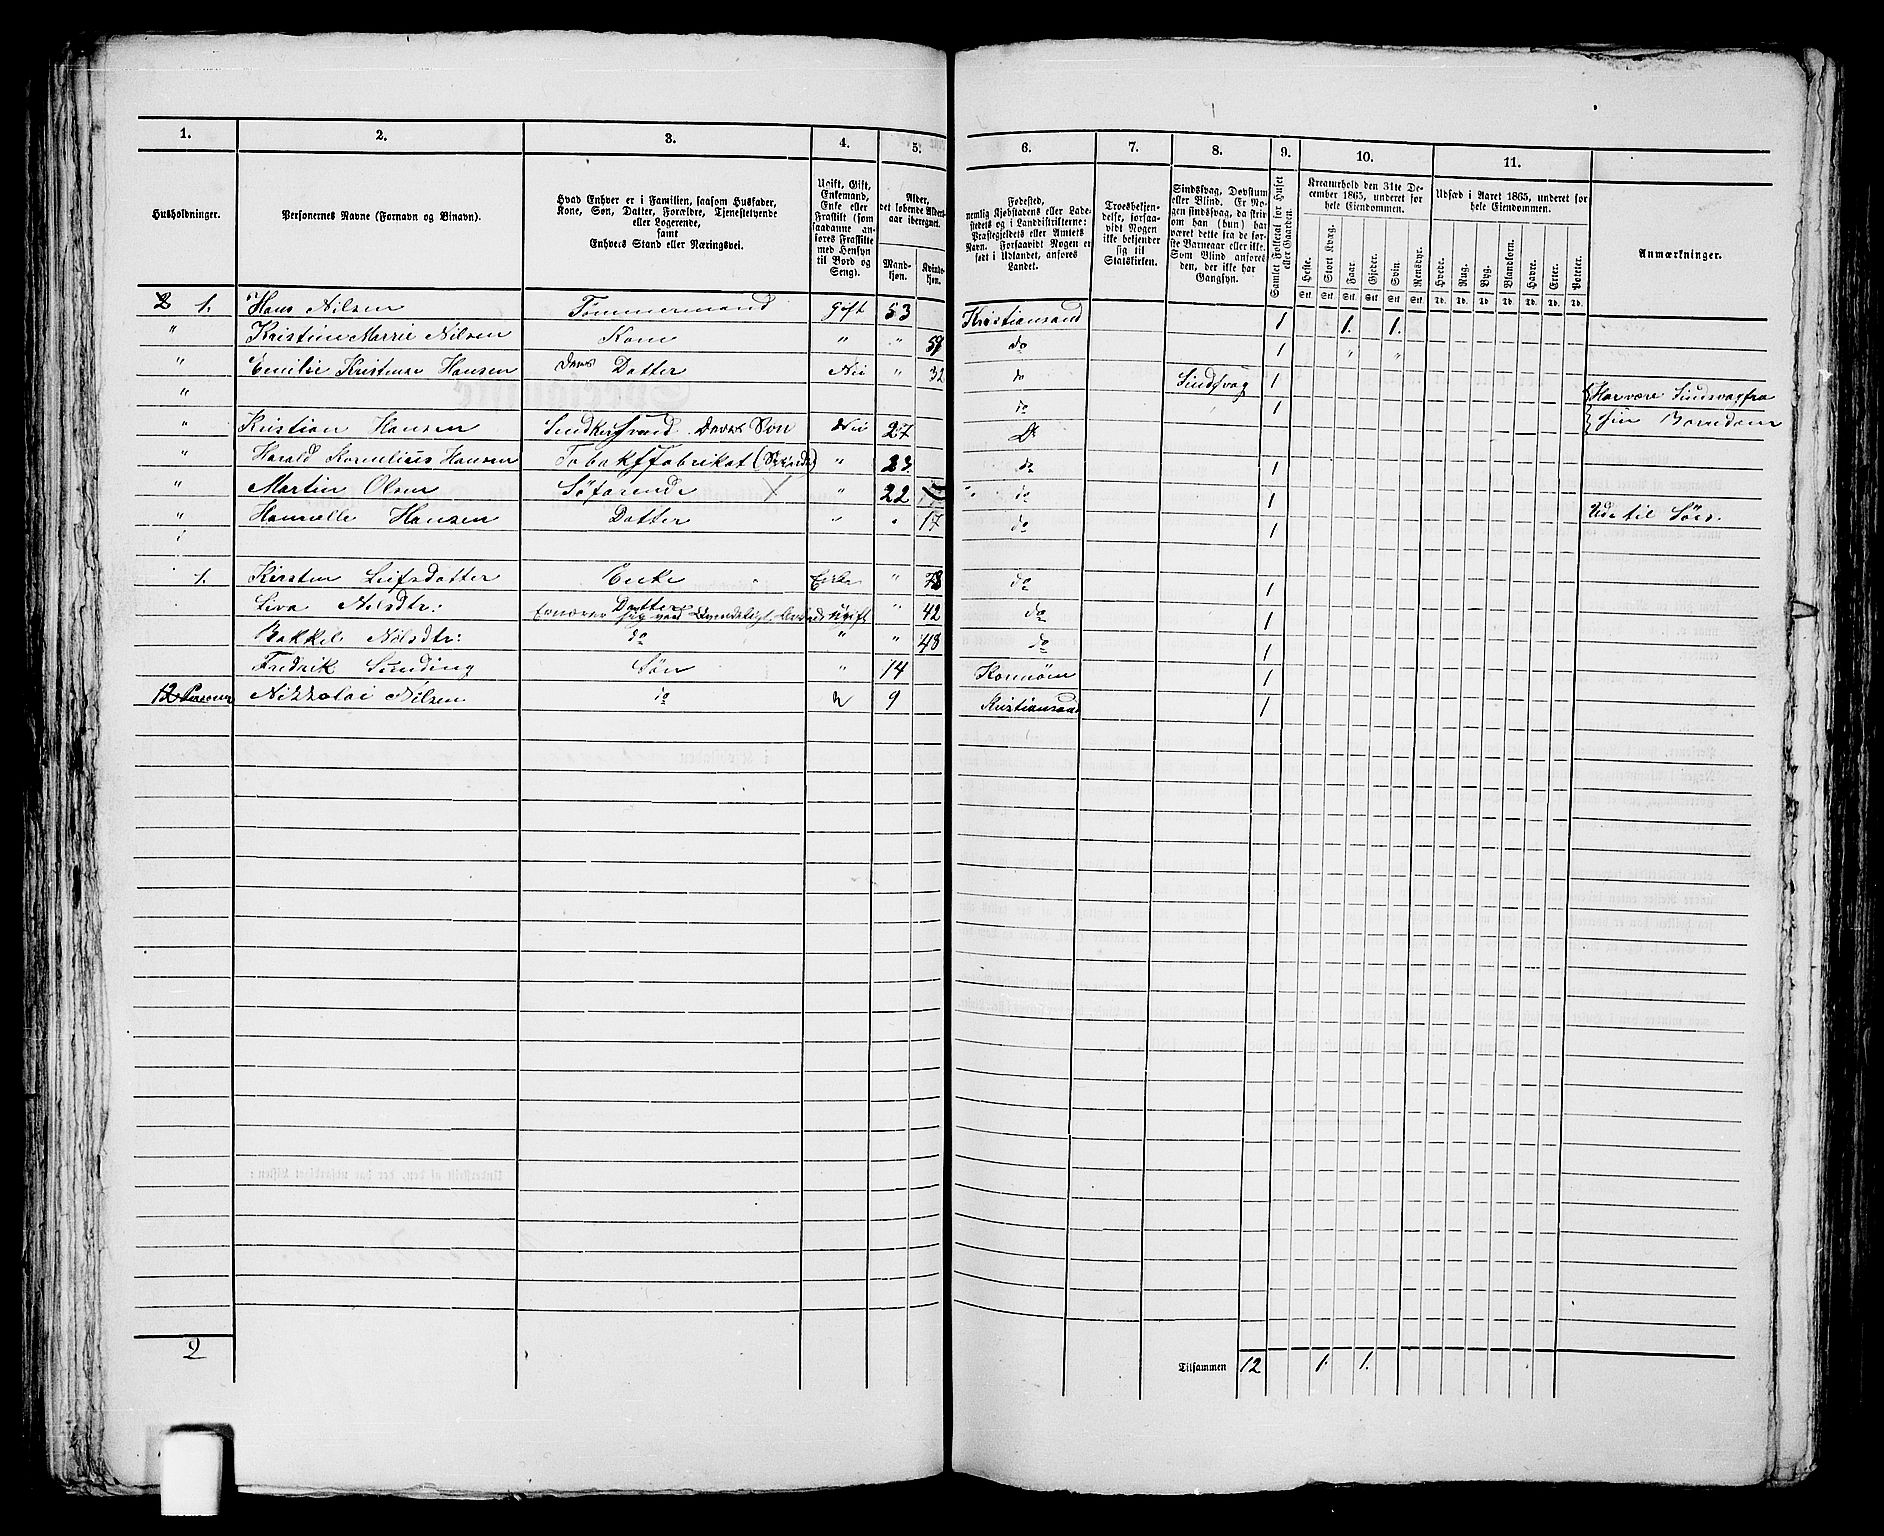 1. 2. 3. 4. 5. 6. 7. 8. 9. 10. 11.
Husholdninger.
Personernes Navne (Fornavn og Binavn).
Hvad Enhver er i Familien, saasom Husfader,
Kone, Søn, Datter, Forældre, Tjenestetyende
eller Logerende,
samt
Enhvers Stand eller Næringsvei.
Ugift, Gift,
Enkemand,
Enke eller
Fraskilt (som
saadanne an-
føres Fraskilte
med Hensyn
til Bord og
Seng).
Alder,
det løbende Alders-
aar iberegnet.
Mand-
kjøn.
Kvinde-
kjøn.
Fødested,
nemlig Kjøbstadens eller Lade-
stedets og i Landdistrikterne:
Præstegjeldets eller Amtets
Navn. Forsaavidt Nogen er
født i Udlandet, anføres
Landet.
Troesbekjen-
delse, forsaa-
vidt Nogen
ikke bekjender
sig til
Statskirken.
Sindssvag, Døvstum
eller Blind. Er No-
gen sindssvag, da skri-
om han (hun) har
været dette fra de før-
ste Barneaar eller ikke.
Som Blind anføres
den, der ikke har
Gangsyn.
Samlet Folketal for Huset
eller Gaarden.
Kreaturhold den 31te De-
cember 1865, underet for
hele Eiendommen.
Heste. Stort Kvæg. Faar. Gjeder. Svin. Rensdyr.
Stk. Stk. Stk. Stk. Stk. Stk.
Udsæd i Aaret 1865, underet for
hele Eiendommen.
Hvede. Rug. Byg. Blandkorn. Havre. Erter. Poteter.
Td. Td. Td. Td. Td. Td. Td.
Anmærkninger.
2 1. Hans Nilsen Tømmermand Gift 53 Kristiansand 1 1. 1.
" Kristine Marrie Nilsen Kone " " do 1 " "
" Emilie Kristense Hansen Deres Datter " 32 do Sindsvag 1
" do 1 Har være Sindsvag fra
" Kristian Hansen Deres Søn 27 sin Barndom
" Harald Kornelius Hansen " 23 do 1
" Martin Olsen Søfarende X " 22 " do 1
" Hansen Datter " " 17 do 1 Ude til Søes.
1. Kirsten Leifsdatter Enke Enke " 78 do 1
Siva Nilsdtr: Datter
Ernærer sig ved ugift " 42 do 1
Rakkel Nilsdtr: do " " 48 do 1
Fredrik Sunding Søn " 14 1
12 Personer Nikkolai Nilsen do 9 Kristiansand 1
2
Tilsammen 12 1. 1.